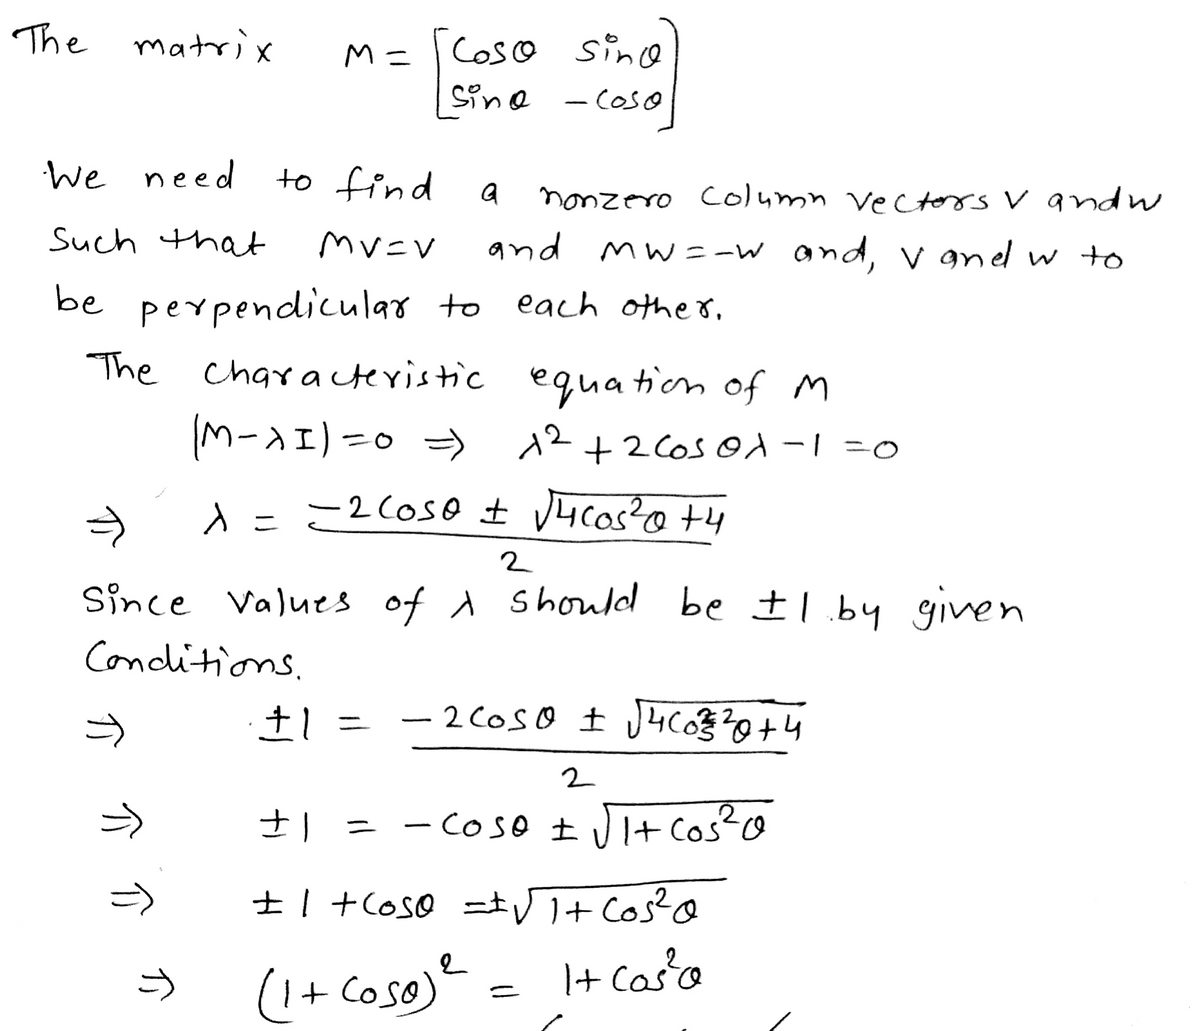 The matrix M = [cosθ sinθ
sinθ -cosθ]
We need to find a nonzero column vectors v and w
such that Mv=v and Mw=-w and, v and w to
be perpendicular to each other.
The characteristic equation of M
|M-λI|=0 ⇒ λ² + 2cosθλ - 1 = 0
⇒ λ = -2cosθ ± √4cos²θ+4
2
Since values of λ should be ±1 by given
conditions.
⇒ ±1 = -2cosθ ± √4cos²θ+4
2
⇒ ±1 = -cosθ ± √1+cos²θ
⇒ ±1+cosθ =±√1+cos²θ
⇒ (1+cosθ)² = 1+cos²θ